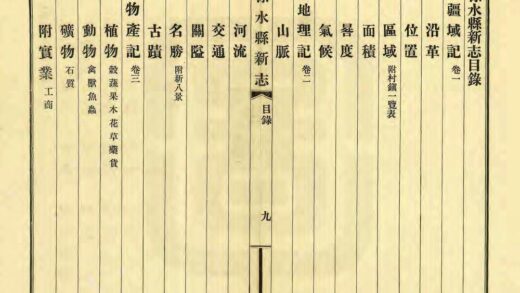 水縣新志目錄
疆域記 卷一
沿革
位置
區域 附村鎮一覽表
面積
晷度
氣候
地理記 卷二
山脈
水縣新志 目錄 九
河流
交通
關隘
名勝 附新八景
古蹟
物產記 卷三
植物 穀蔬果木花草藥貨
動物 禽獸魚蟲
礦物 石質
附實業 工商